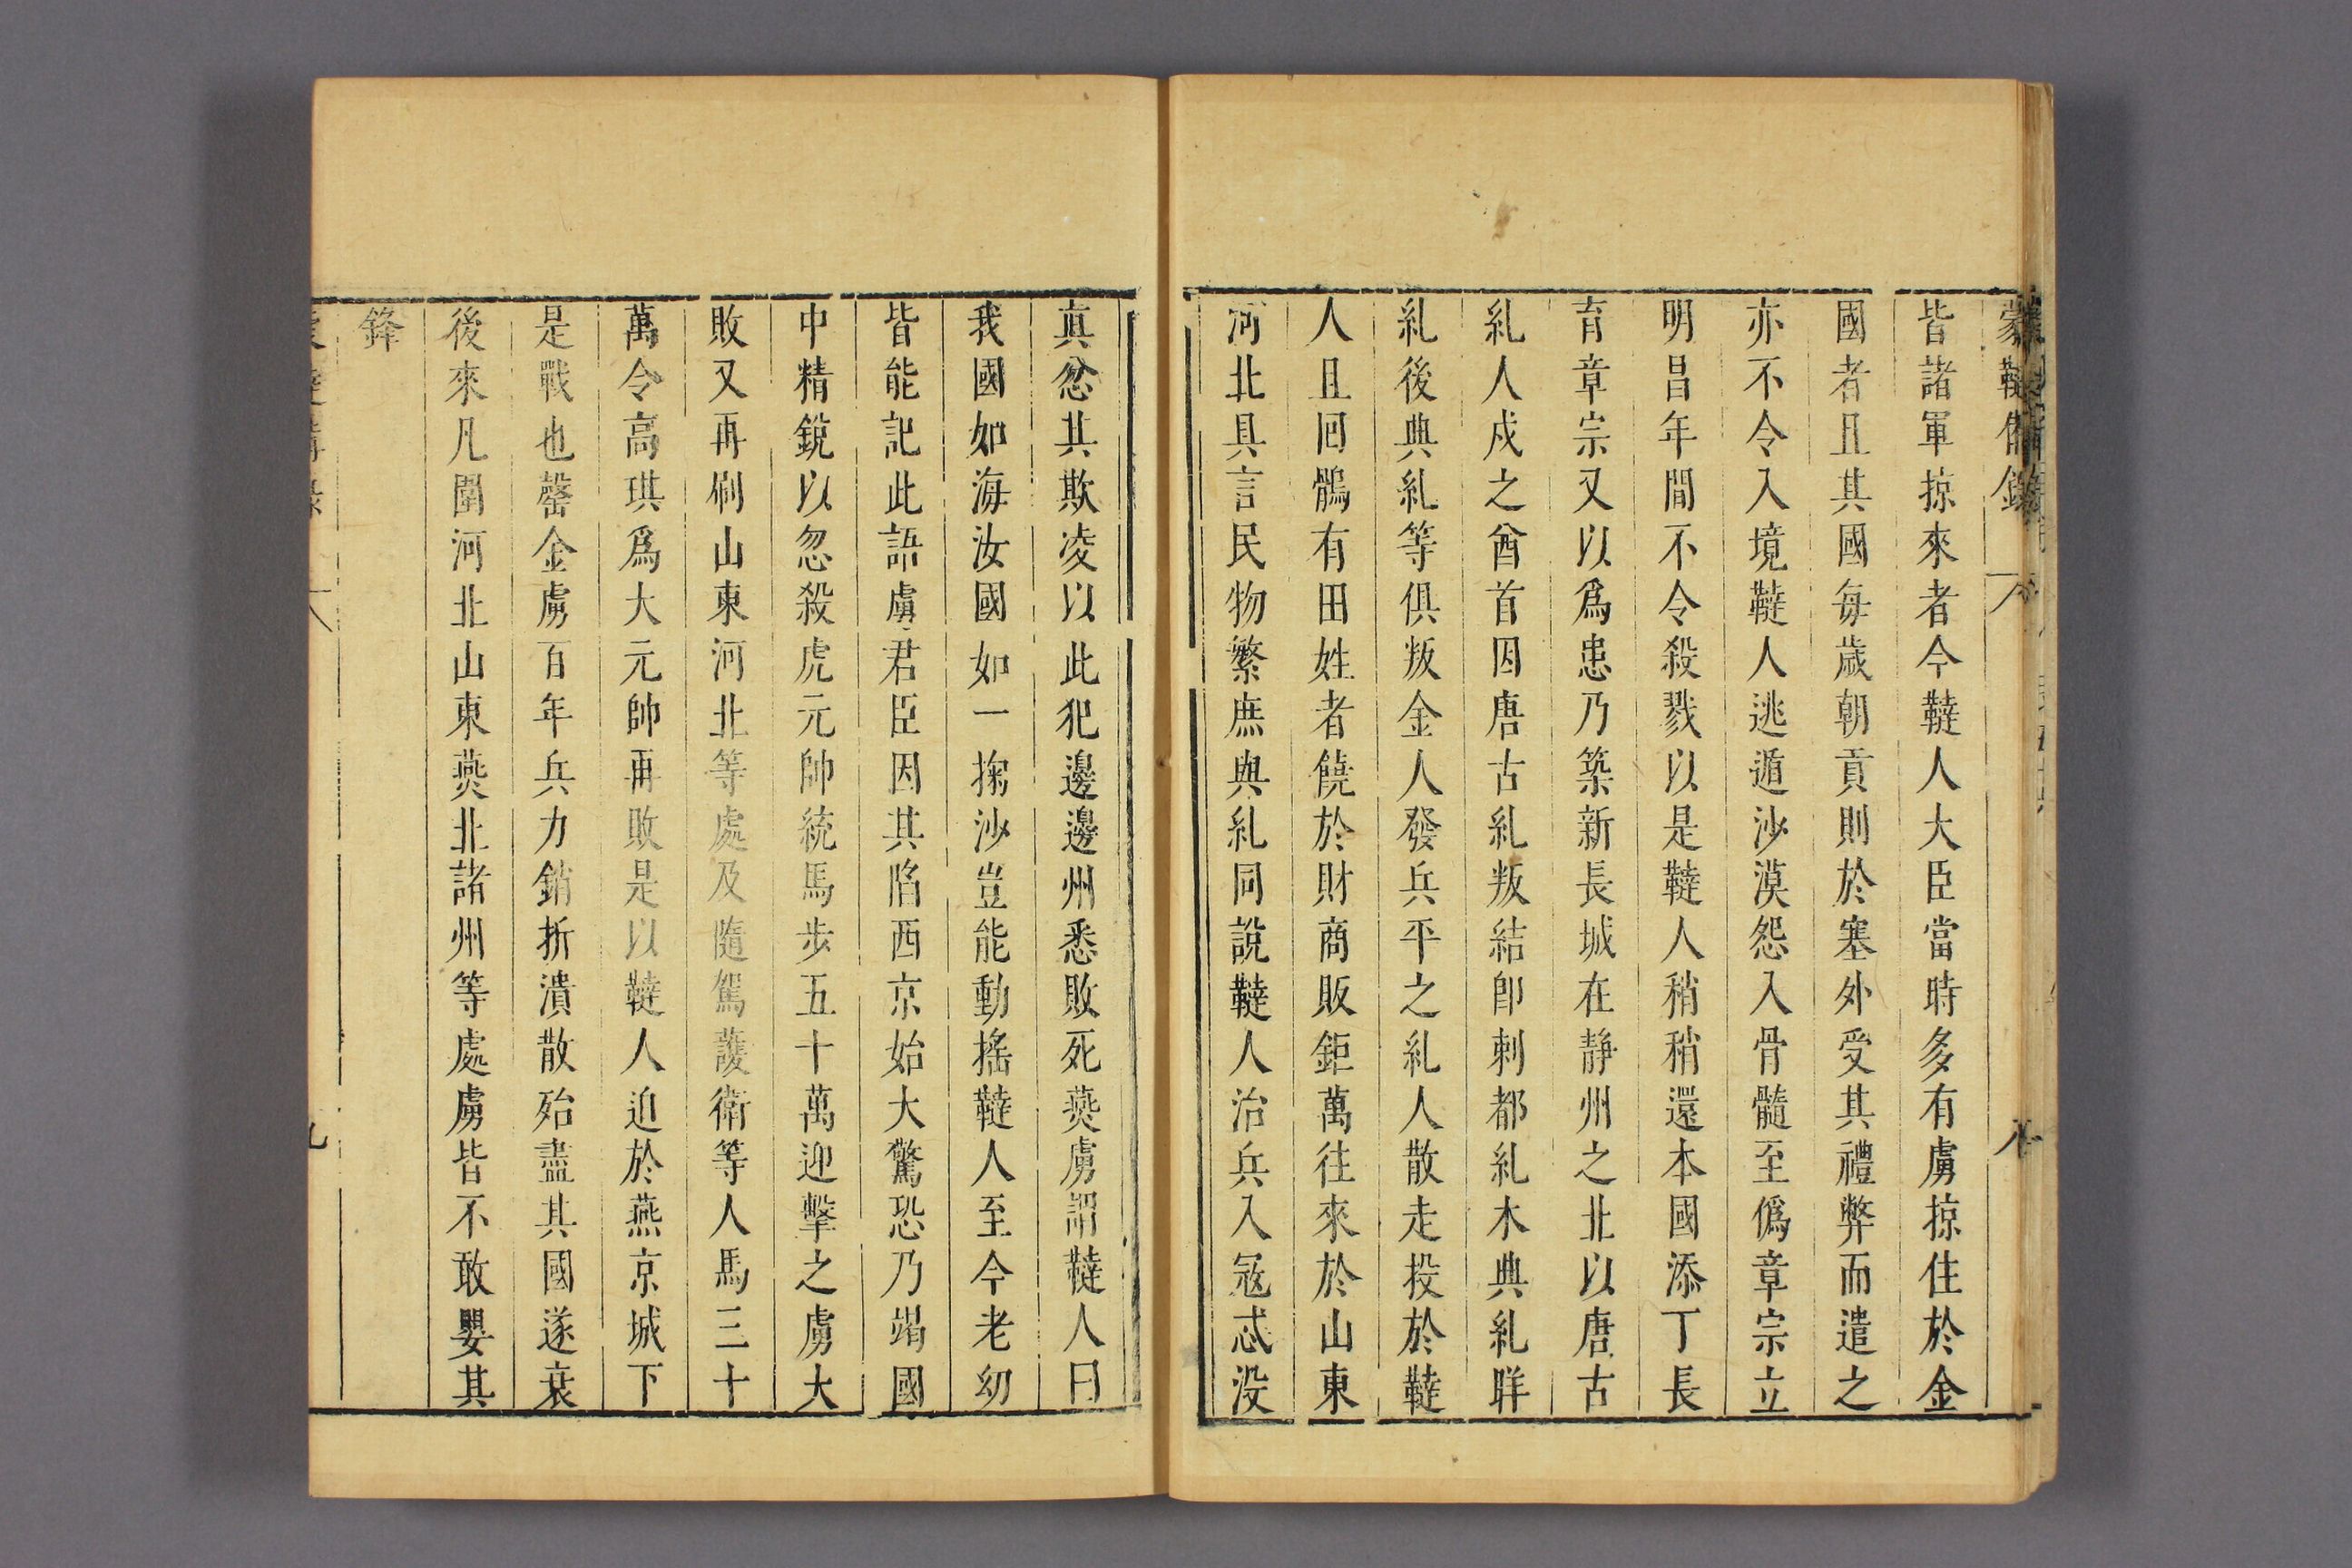 蒙韃備錄 八
皆諸軍掠來者今韃人大臣當時多有虜掠住於金
國者且其國每歲朝貢則於塞外受其禮弊而遣之
亦不令入境韃人逃遁沙漠怨入骨髓至僞章宗立
明昌年間不令殺戮以是韃人稍稍還本國添丁長
育章宗又以爲患乃築新長城在靜州之北以唐古
糺人戍之酋首因唐古糺叛結卽剌都糺木典糺眻
糺後典糺等俱叛金人發兵平之糺人散走投於韃
人且囘鶻有田姓者饒於財商販鉅萬往來於山東
河北具言民物繁庶與糺同說韃人治兵入冦忒没
真忿其欺凌以此犯邊邊州悉敗死燕虜謂韃人曰
我國如海汝國如一掬沙豈能動搖韃人至今老幼
皆能記此語虜君臣因其陷西京始大驚恐乃竭國
中精銳以忽殺虎元帥統馬步五十萬迎擊之虜大
敗又再刷山東河北等處及隨駕護衛等人馬三十
萬令高琪爲大元帥再敗是以韃人迫於燕京城下
是戰也罄金虜百年兵力銷折潰散殆盡其國遂衰
後來凡圍河北山東燕北諸州等處虜皆不敢嬰其
鋒